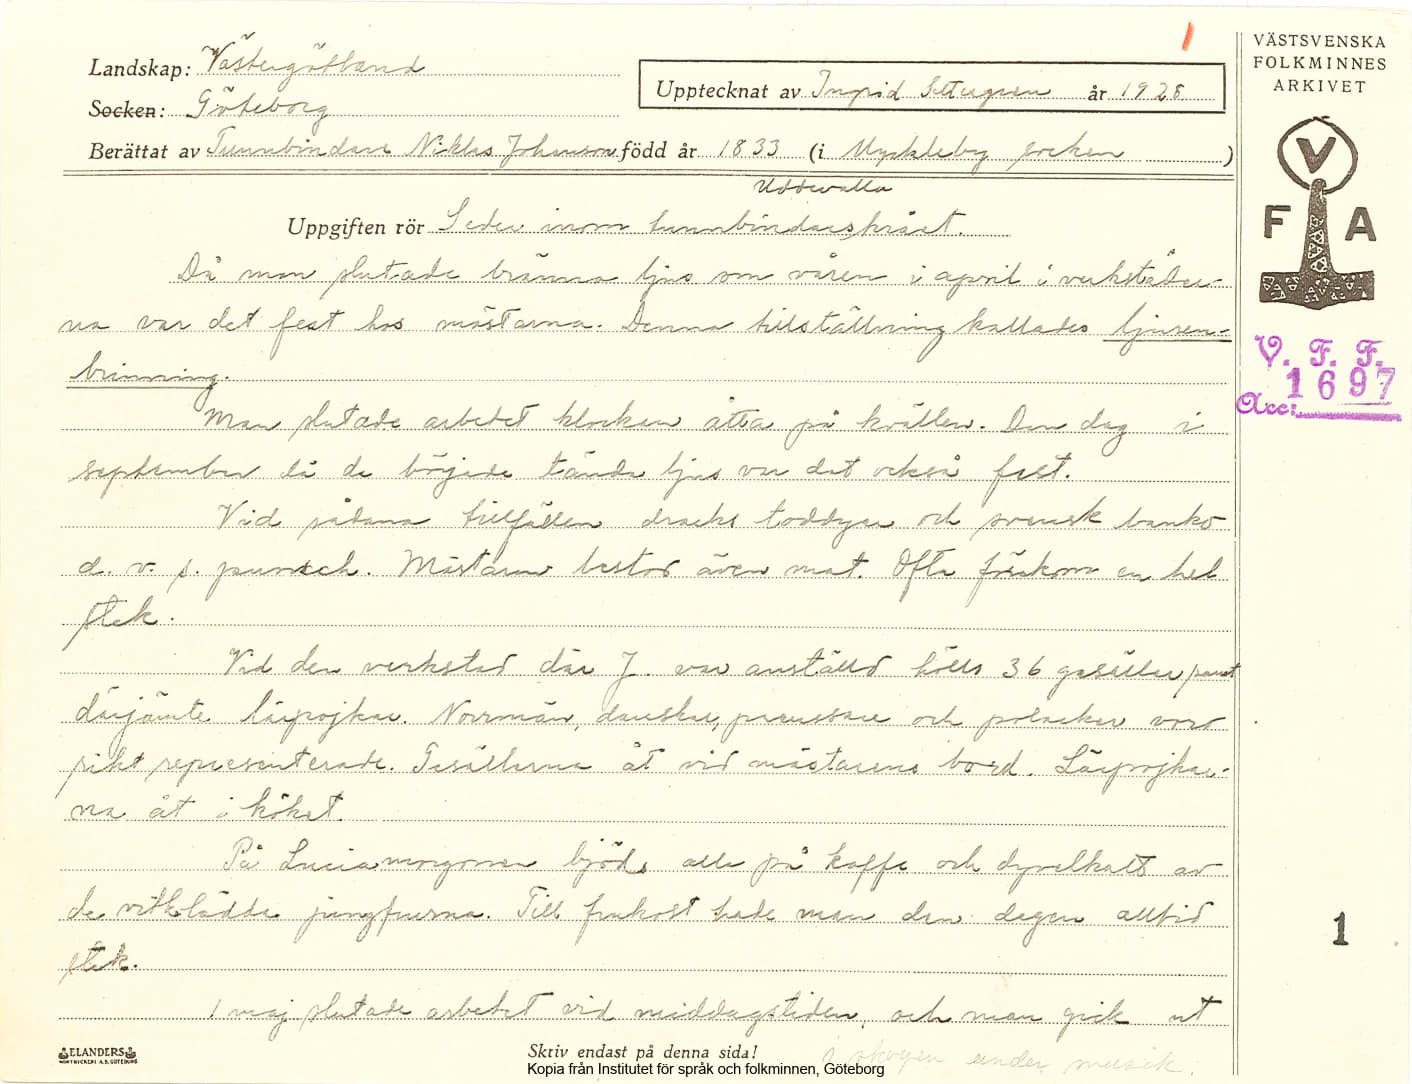 1
VÄSTSVENSKA
FOLKMINNES
ARKIVET
Landskap: Västergötland
Upptecknat av Ingrid år 1928
Socken: Göteborg
Berättat av Tunnbindare Niklas Johanson född år 1833 (i Myckleby socken)
V
F A
Uddevalla
Uppgiften rör Seder inom tunnbindarskrået.
Då man slutade bränna ljus om våren i april i verkstäder-
na var det fest hos mästarna. Denna tillställning kallades ljusen-
brinning.
V. F. F.
Acc: 1697
Man slutade arbetet klockan åtta på kvällen. Den dag i
september då de började tända ljus var det också fest.
Vid sådana tillfällen dracks toddyar och svensk banko
d. v. s. punsch. Mästaren bestod även mat. Ofta förekom en hel
stek.
Vid den verkstad där J. var anställd hölls 36 gesäller samt
därjämte lärpojkar. Norrmän, danskar, preussare och polacker voro
rikt representerade. Gesällerna åt vid mästarens bord. Lärpojkar-
na åt i köket.
På Luciamorgonen bjöds alla på kaffe och dyvelkatt av
de vitklädda jungfrurna. Till frukost hade man den dagen alltid
stek.
1
1 maj slutade arbetet vid middagstiden, och man gick ut
i skogen under musik.
ELANDERS
BOKTRYCKERI A.B. GÖTEBORG
Skriv endast på denna sida!
Kopia från Institutet för språk och folkminnen, Göteborg